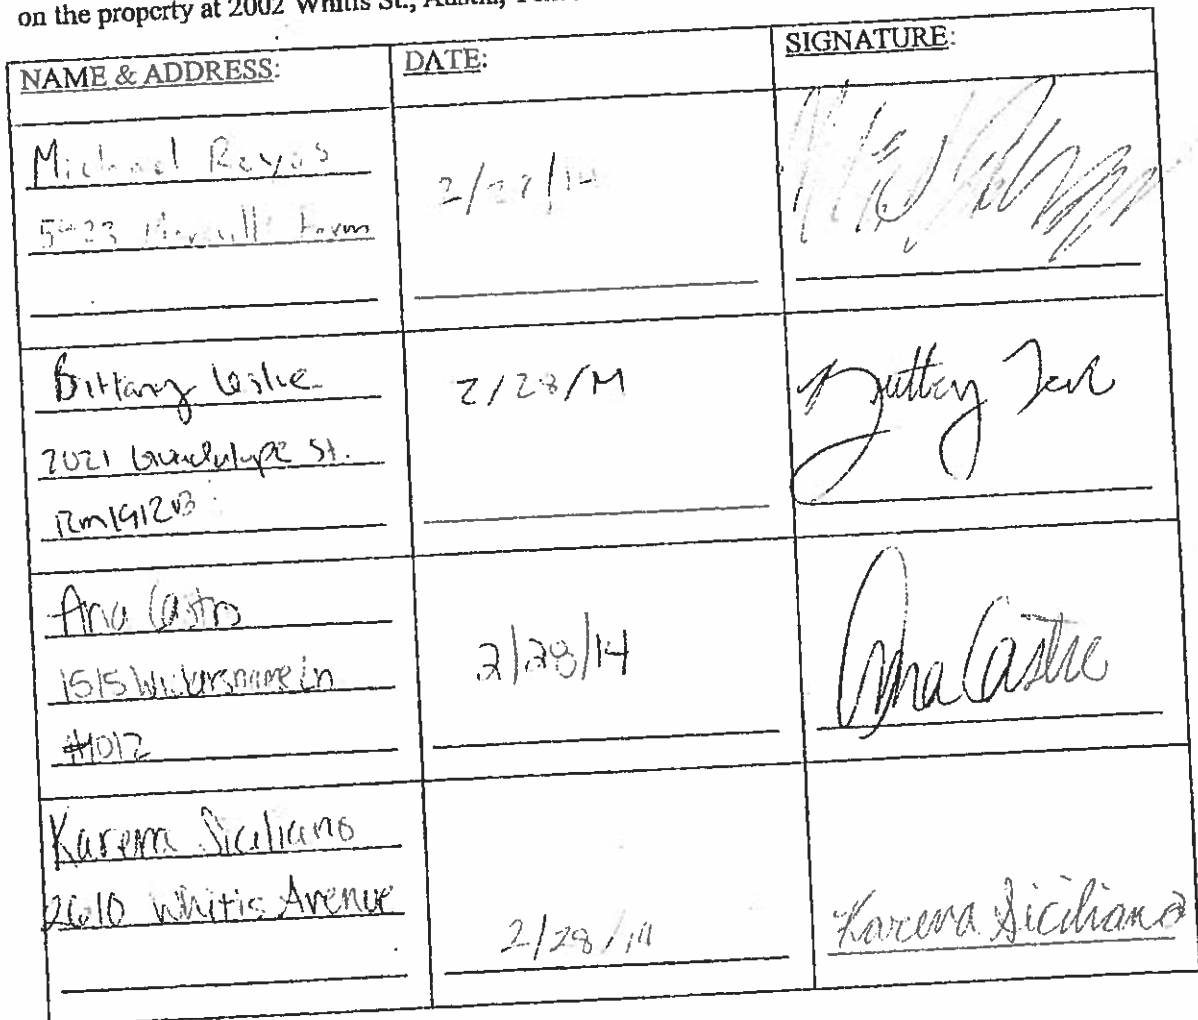 on the property at 2002 Whitis St., Austin,
NAME & ADDRESS: DATE: SIGNATURE:
Michael Reyes
2/28/14
5423
Brittany Leslie
2/28/14
2021 Guadalupe St.
Rm 1912B
Ana Castro
2/28/14 Ana Castro
1515 Wickersham Ln
#1012
Karena Siciliano
2610 Whitis Avenue
2/28/14 Karena Siciliano